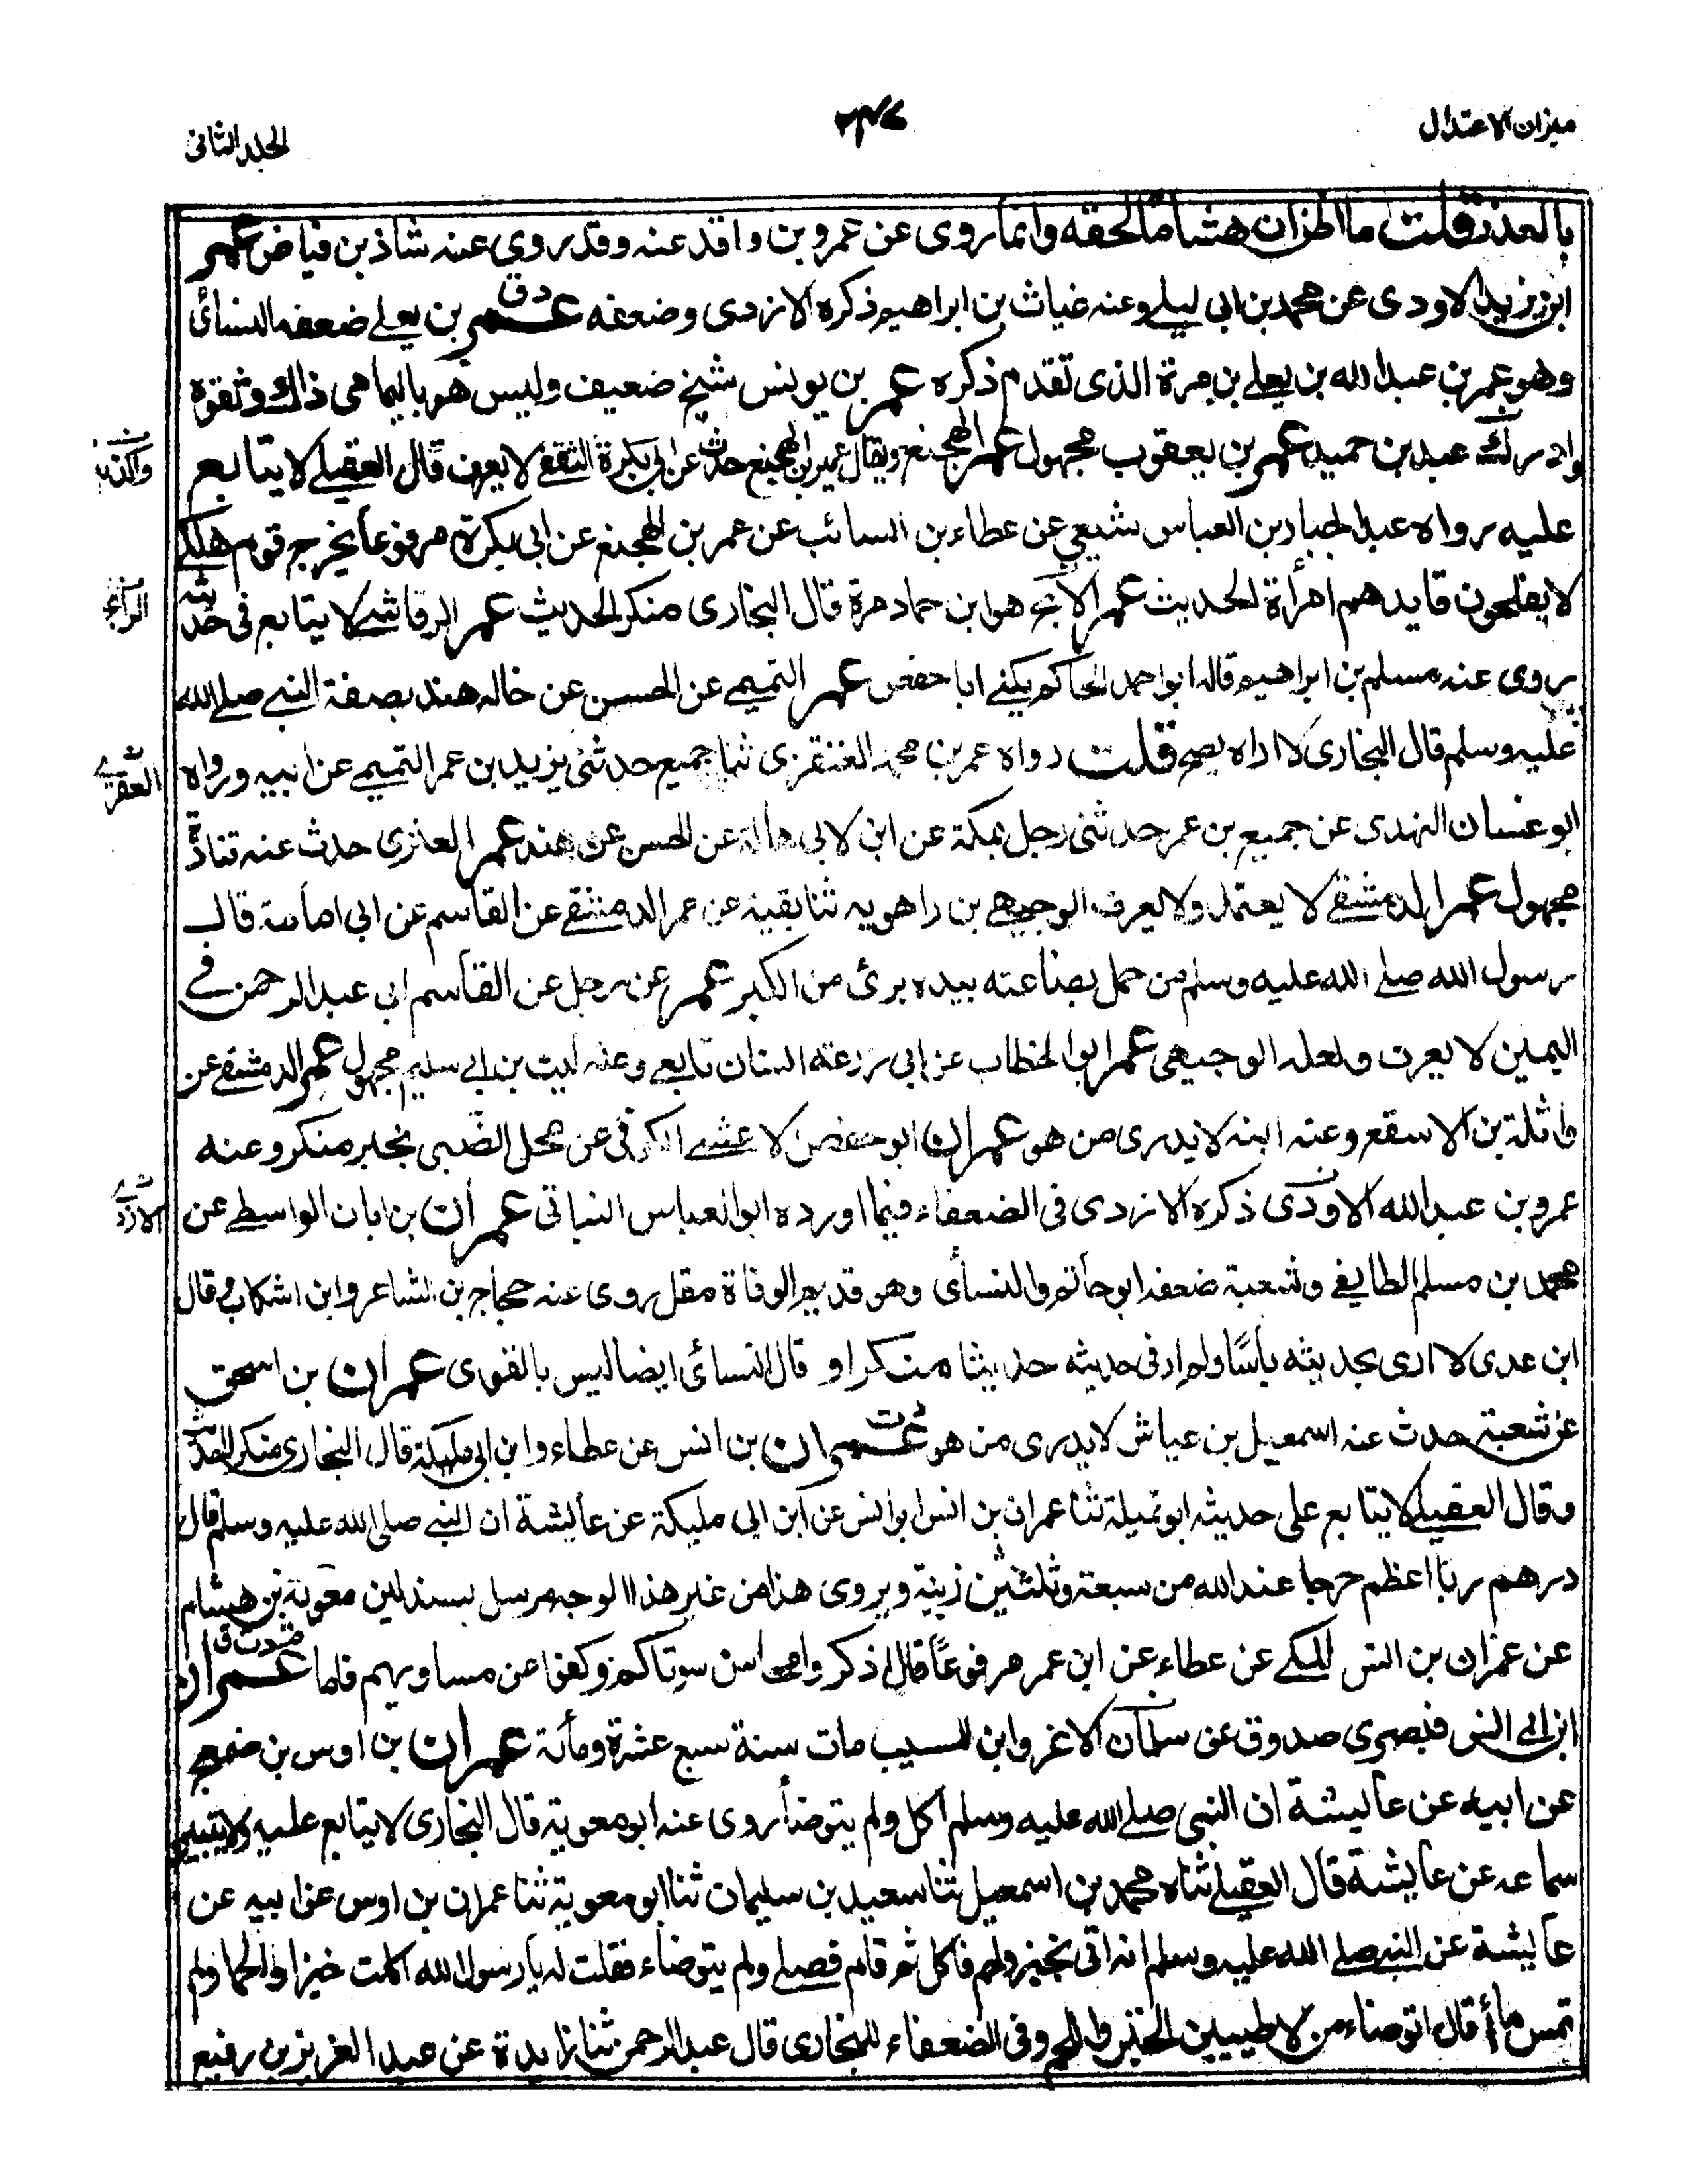 ميزان الاعتدال
٢٧٤
الجلد الثانى
بالعذر قلت ما اظن ان هشاما لحقه وانما روى عن عمرو بن واقد عنه وقد روى عنه شاذ بن فياض عمر
ابن يزيد الاودى عن محمد بن ابى ليلے وعنه غياث بن ابراهيم ذكره الازدى وضعفه دق عمر بن يعلے ضعفه النسائى
وهو عمر بن عبد الله بن يعلے بن مرة الذى تقدم ذكره عمر بن يونس شيخ ضعيف وليس هو باليمامى ذاك وثقوه
وادرك عبد بن حميد عمر بن يعقوب مجهول عمر الهجنع ويقال عمر بن الهجنع حدث عن ابى بكرة الثقفے لا يعرف قال العقيلے لا يتابع
عليه رواه عبد الجبار بن العباس شيعي عن عطاء بن السائب عن عمر بن الهجنع عن ابى بكرة مرفوعا يخرج قوم هلكے
لا يفلحون قايدهم امرأة الحديث عمر الابح هو ابن حماد مرة قال البخارى منكر الحديث عمر الرقاشے لا يتابع فى حديثه
يروى عنه مسلم بن ابراهيم قاله ابو احمد الحاكم يكنے ابا حفص عمر التميمے عن الحسن عن خاله هند بصفة النبے صلے الله
عليه وسلم قال البخارى لا اراه يصح قلت رواه عمر بن محمد العنقزى ثنا جميع حدثنى يزيد بن عمر التميمے عن ابيه ورواه
ابو غسان النهدى عن جميع بن عمر حدثنى رجل بمكة عن ابن لابى هالة عن الحسن عن هند عمر العنزى حدث عنه قتادة
مجهول عمر الدمشقے لا يعتمد ولا يعرف الوجيهے بن راهويه ثنا بقية عن عمر الدمشقے عن القاسم عن ابى امامة قال
رسول الله صلے الله عليه وسلم من حمل بضاعته بيده برئ من الكبر عمر عن رجل عن القاسم ابى عبد الرحمن فے
اليمين لا يعرف ولعله الوجيهى عمر ابو الخطاب عن ابى زرعة السنان تابعے وعنه ليث بن ابے سليم مجهول عمر الدمشقے عن
واثلة بن الاسقع وعنه ابنه لا يدرى من هو عمران ابو حفص الاعشے الكوفى عن محل الضبى بخبر منكر وعنه
عمرو بن عبد الله الاودى ذكره الازدى فى الضعفاء فيما اورده ابو العباس النباتى عمران بن ابان الواسطے عن
محمد بن مسلم الطايفے وشعبة ضعفه ابو حاتم والنسأى وهو قديم الوفاة مقل روى عنه حجاج بن الشاعر وابن اشكاب قال
ابن عدى لا ارى بحديثه بأسا ولم ار فى حديثه حديثا منكرا و قال النسائى ايضا ليس بالقوى عمران بن اسحق
عن شعبة حدث عنه اسمعيل بن عياش لا يدرى من هو دت عمران بن انس عن عطاء وابن ابى مليكة قال البخارى منكر الحديث
وقال العقيلے لا يتابع على حديثه ابو تميلة ثنا عمران بن انس ابو انس عن ابن ابى مليكة عن عايشة ان النبے صلى الله عليه وسلم قال
درهم ربا اعظم حرجا عند الله من سبعة وثلثين زنية ويروى هذا من غير هذا الوجه مرسل بسند لين معوية بن هشام
عن عمران بن انس المكے عن عطاء عن ابن عمر مرفوعا قال اذكروا محاسن موتاكم وكفوا عن مساويهم فاما عمران
ابن ابى انس فبصرى صدوق عن سلمان الاغر وابن المسيب مات سنة سبع عشرة ومأئة عمران بن اوس بن ضمعج
عن ابيه عن عايشة ان النبى صلے الله عليه وسلم اكل ولم يتوضأ روى عنه ابو معوية قال البخارى لا يتابع عليه ولا يتبين
سماعه عن عايشة قال العقيلے ثناه محمد بن اسمعيل ثنا سعيد بن سليمان ثنا ابو معوية ثنا عمران بن اوس عن ابيه عن
عايشة عن النبے صلے الله عليه وسلم انه اتى بخبز ولحم فاكل ثم قام فصلے ولم يتوضاء فقلت له يا رسول الله اكلت خبزا ولحما ولم
تمس مأ قال اتوضاء من الاطيبين الخبز واللحم وفى الضعفاء للبخارى قال عبد الرحمن ثنا زايدة عن عبد العزيز بن رفيع